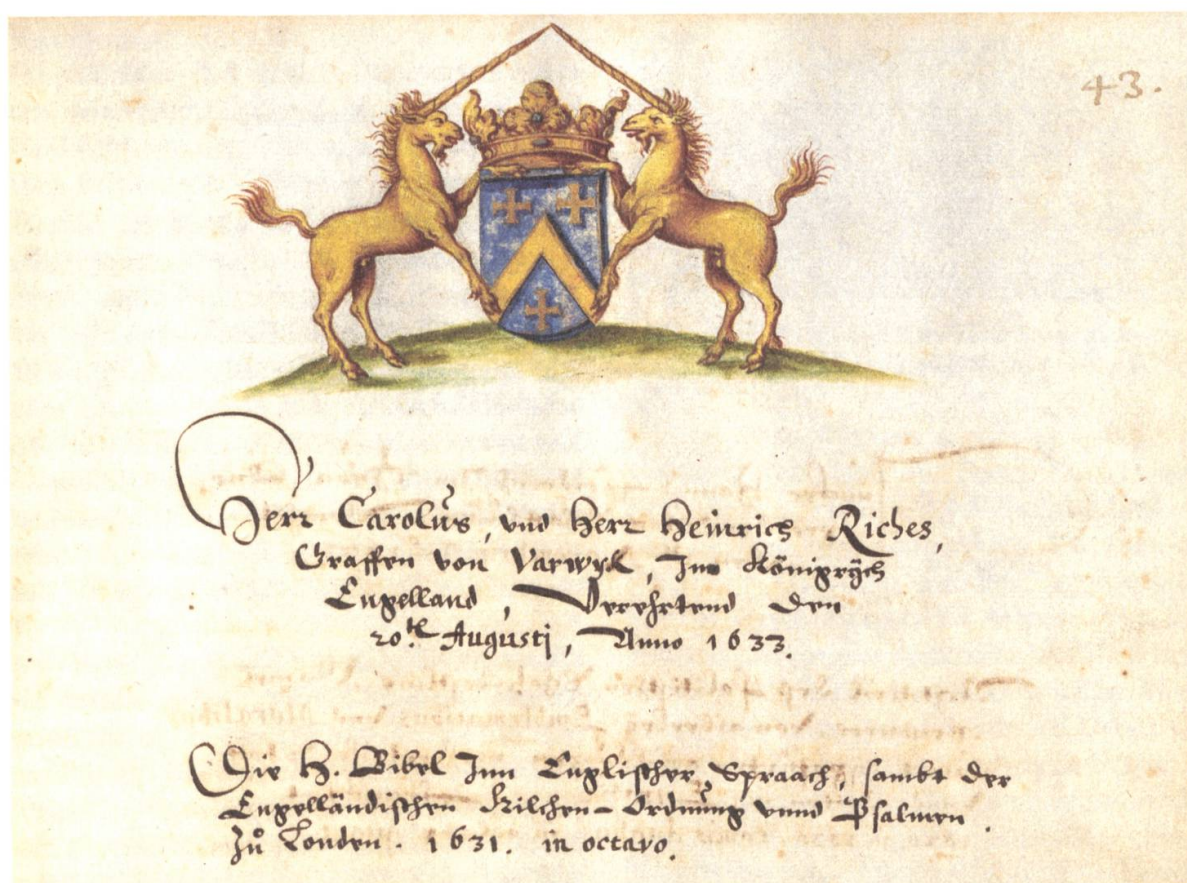 43.
Herr Carolus, vnd Herr Heinrich Riches,
Graffen von Varwyk, Im Königrÿch
Engelland, Verehrtend den
20.t Augustj, Anno 1633.
Die H. Bibel Inn Englischer Spraach, sambt der
Engelländischen Kilchen-Ordnung vnnd Psalmen.
Zů Londen. 1631. in octavo.